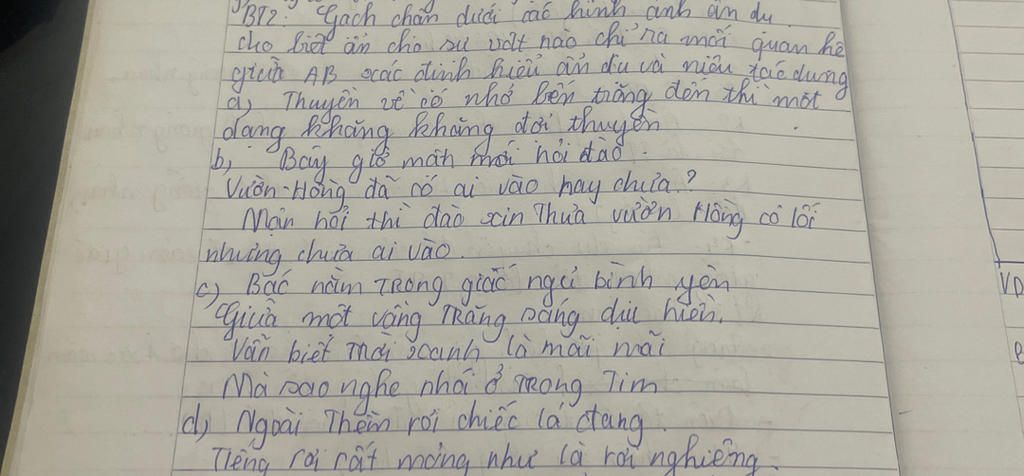 BT2: Gạch chân dưới các hình ảnh ẩn dụ.
cho biết ẩn cho sự vật nào chỉ ra mối quan hệ
giữa AB xác định kiểu ẩn dụ và nêu tác dụng
a, Thuyền về có nhớ bến trăng đến thì một
dạng khăng khăng đợi thuyền
b, Bây giờ mận mới hỏi đào.
Vườn-Hồng đã có ai vào hay chưa?
Mận hỏi thì đào xin Thưa vườn Hồng có lối
nhưng chưa ai vào.
c) Bác nằm Trong giấc ngủ bình yên
Giữa một vầng Trăng sáng dịu hiền.
Vẫn biết Trời xanh là mãi mãi
Mà sao nghe nhói ở Trong Tim
d) Ngoài Thềm rơi chiếc lá đang.
Tiếng rơi rất mỏng như là rơi nghiêng.
VD